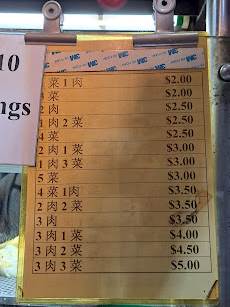 10
ngs
菜 1 肉 $2.00
菜 $2.00
肉 $2.50
肉 2 菜 $2.50
菜 $2.50
2 肉 1 菜 $3.00
1 肉 3 菜 $3.00
5 菜 $3.00
4 菜 1 肉 $3.50
2 肉 2 菜 $3.50
3 肉 $3.50
3 肉 1 菜 $4.00
3 肉 2 菜 $4.50
3 肉 3 菜 $5.00